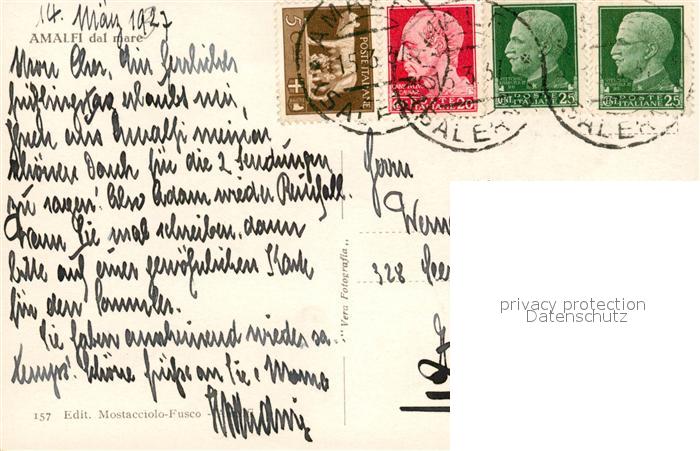 14. März 1937
AMALFI dal mare
Mon Cher, ein herrlicher
Frühlingstag erlaubt mir,
Ihnen aus Amalfi meinen
schönen Dank für die 2 Sendungen
zu sagen! Also Adam wieder Reinfall.
Wenn Sie mal schreiben, dann
bitte auf einer gewöhnlichen Karte
für den Sammler.
Sie haben anscheinend wieder so
Schöne Grüße an Sie + Mama
157 Edit. Mostacciolo-Fusco -
"Vera Fotografia"
Herrn
Wern
328
5 POSTE ITALIANE
POSTE ITALIANE 20
POSTE ITALIANE 25
POSTE ITALIANE 25
AMALFI
SALERNO
privacy protection
Datenschutz